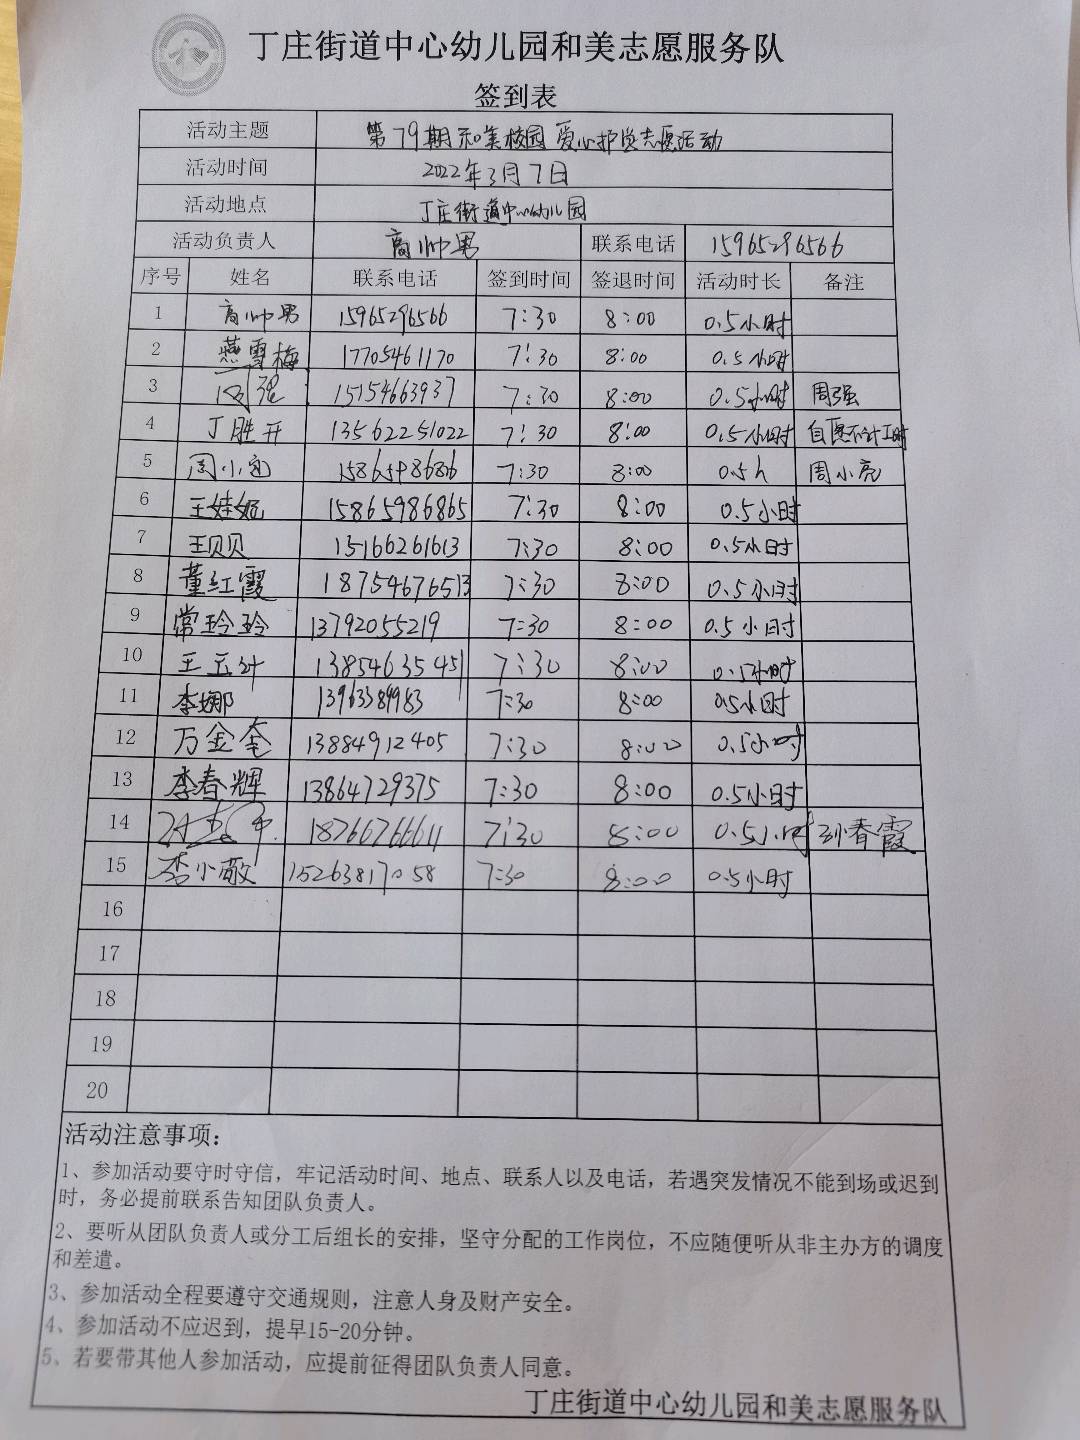 丁庄街道中心幼儿园和美志愿服务队
签到表
活动主题 第79期和美校园爱心护学志愿活动
活动时间 2022年3月7日
活动地点 丁庄街道中心幼儿园
活动负责人 高帅男 联系电话 15965296566
序号 姓名 联系电话 签到时间 签退时间 活动时长 备注
1 高帅男 15965296566 7:30 8:00 0.5小时
2 燕雪梅 17705461170 7:30 8:00 0.5小时
3 周强 15154663937 7:30 8:00 0.5小时 周强
4 丁胜开 13562251022 7:30 8:00 0.5小时 自愿不计工时
5 周小亮 7:30 8:00 0.5h 周小亮
6 王娃妮 15865986865 7:30 8:00 0.5小时
7 王贝贝 15166261613 7:30 8:00 0.5小时
8 董红霞 18754676513 7:30 8:00 0.5小时
9 常玲玲 13792055219 7:30 8:00 0.5小时
10 王玉叶 13854635451 7:30 8:00 0.5小时
11 李娜 13963389983 7:30 8:00 0.5小时
12 万金奎 13884912405 7:30 8:00 0.5小时
13 李春辉 13864729375 7:30 8:00 0.5小时
14 18766766611 7:30 8:00 0.5小时 孙春霞
15 李小敏 15263817058 7:30 8:00 0.5小时
16
17
18
19
20
活动注意事项：
1、参加活动要守时守信，牢记活动时间、地点、联系人以及电话，若遇突发情况不能到场或迟到
时，务必提前联系告知团队负责人。
2、要听从团队负责人或分工后组长的安排，坚守分配的工作岗位，不应随便听从非主办方的调度
和差遣。
3、参加活动全程要遵守交通规则，注意人身及财产安全。
4、参加活动不应迟到，提早15-20分钟。
5、若要带其他人参加活动，应提前征得团队负责人同意。
丁庄街道中心幼儿园和美志愿服务队